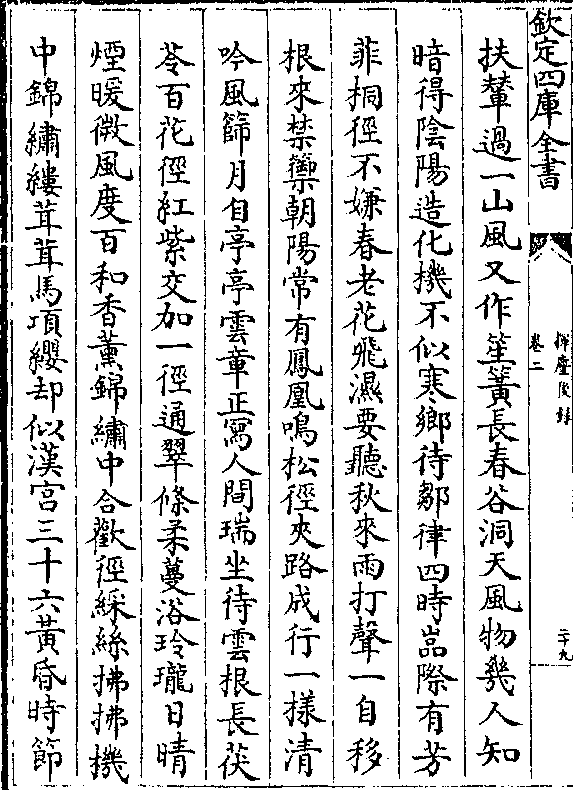 欽定四庫全書
揮麈後錄
卷二
二十九
扶輦過一山風又作笙簧長春谷洞天風物幾人知
暗得陰陽造化機不似寒鄉待鄒律四時嵓際有芳
菲桐徑不嫌春老花飛濕要聽秋來雨打聲一自移
根來禁籞朝陽常有鳳凰鳴松徑夾路成行一樣清
吟風篩月自亭亭雲章正寫人間瑞坐待雲根長茯
苓百花徑紅紫交加一徑通翠條柔蔓浴玲瓏日晴
煙暖微風度百和香薰錦繡中合歡徑綵絲拂拂機
中錦繡縷茸茸馬項纓却似漢宫三十六黃昏時節